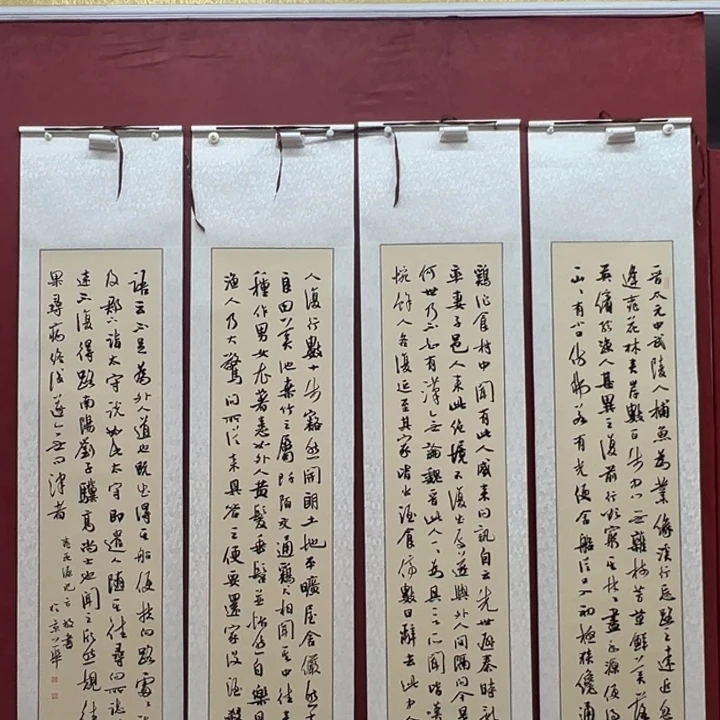 晋太元中武陵人捕魚為業緣溪行忘路之遠近忽
逢桃花林夹岸數百步中無雜樹芳草鮮美落
英繽紛漁人甚異之復前行欲窮其林林盡水源便得
山山有小口仿佛若有光便舍船從口入初極狹纔通
雞作食村中聞有此人咸來問訊自云先世避秦時亂
率妻子邑人來此絕境不復出焉遂與外人間隔問今是
何世乃不知有漢無論魏晉此人一一為具言所聞皆嘆
惋餘人各復延至其家皆出酒食停數日辭去此中人
人復行數十步豁然開朗土地平曠屋舍儼然有
良田美池桑竹之屬阡陌交通雞犬相聞其中往來
種作男女衣著悉如外人黃髮垂髫並怡然自樂見
漁人乃大驚問所從來具答之便要還家設酒殺
語云不足為外人道也既出得其船便扶向路處處
及郡下詣太守說如此太守即遣人隨其往尋向所誌
遠不復得路南陽劉子驥高尚士也聞之欣然規往
果尋病終後遂無問津者
桃花源記
於京華